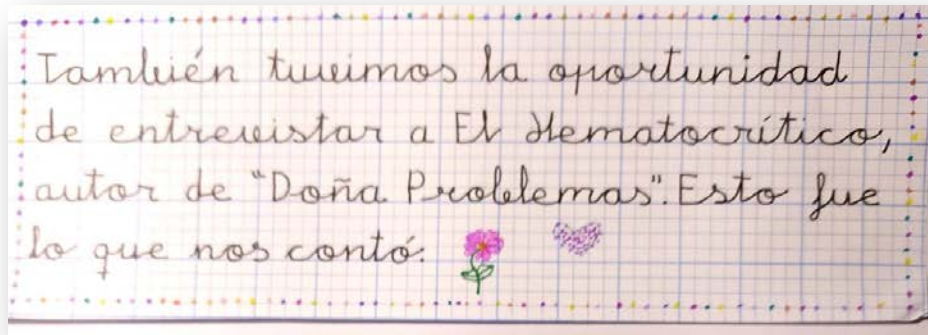 También tuvimos la oportunidad
de entrevistar a El Hematocrítico,
autor de "Doña Problemas". Esto fue
lo que nos contó: